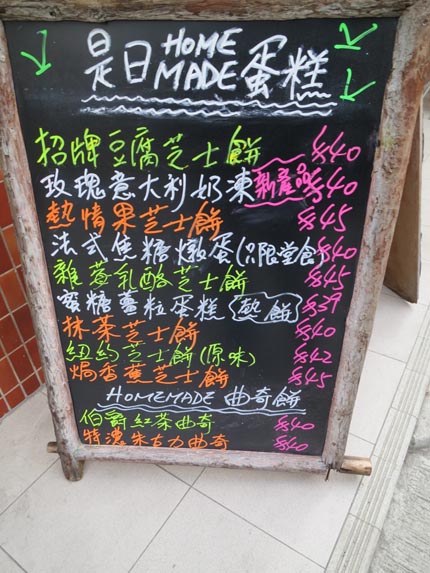 是日HOME MADE蛋糕
招牌豆腐芝士餅 $40
玫瑰意大利奶凍 新產品 $40
熱情果芝士餅 $45
法式焦糖燉蛋(只限堂食) $40
雜莓乳酪芝士餅 $45
蜜糖薑粒蛋糕(熱餅) $39
抹茶芝士餅 $40
紐約芝士餅(原味) $42
焗香蕉芝士餅 $45
HOMEMADE 曲奇餅
伯爵紅茶曲奇 $40
特濃朱古力曲奇 $40